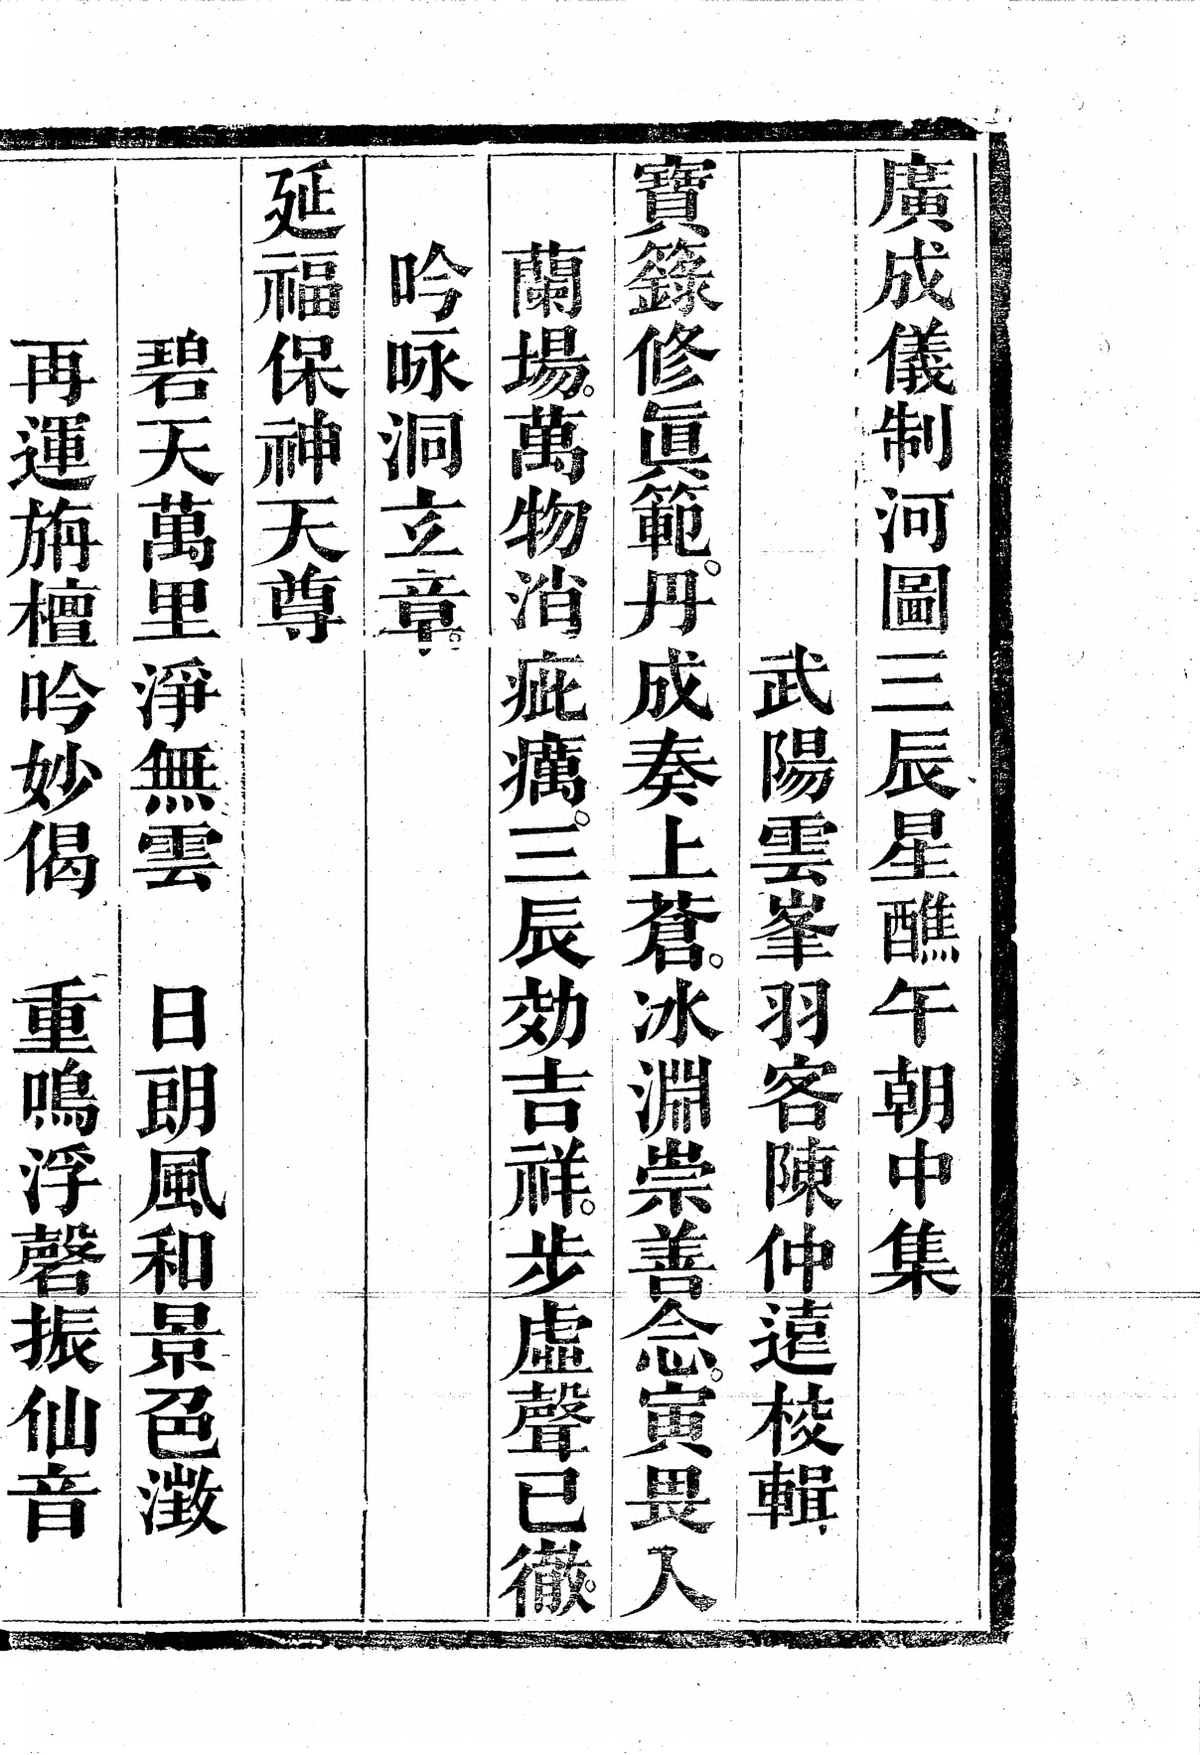 廣成儀制河圖三辰星醮午朝中集
武陽雲峯羽客陳仲遠校輯
寶籙修眞範。丹成奏上蒼。冰淵崇善念。寅畏入
蘭場。萬物消疵癘。三辰効吉祥。步虛聲已徹。
吟咏洞立章。
延福保神天尊
碧天萬里淨無雲　日朗風和景色澂
再運旃檀吟妙偈　重鳴浮磬振仙音